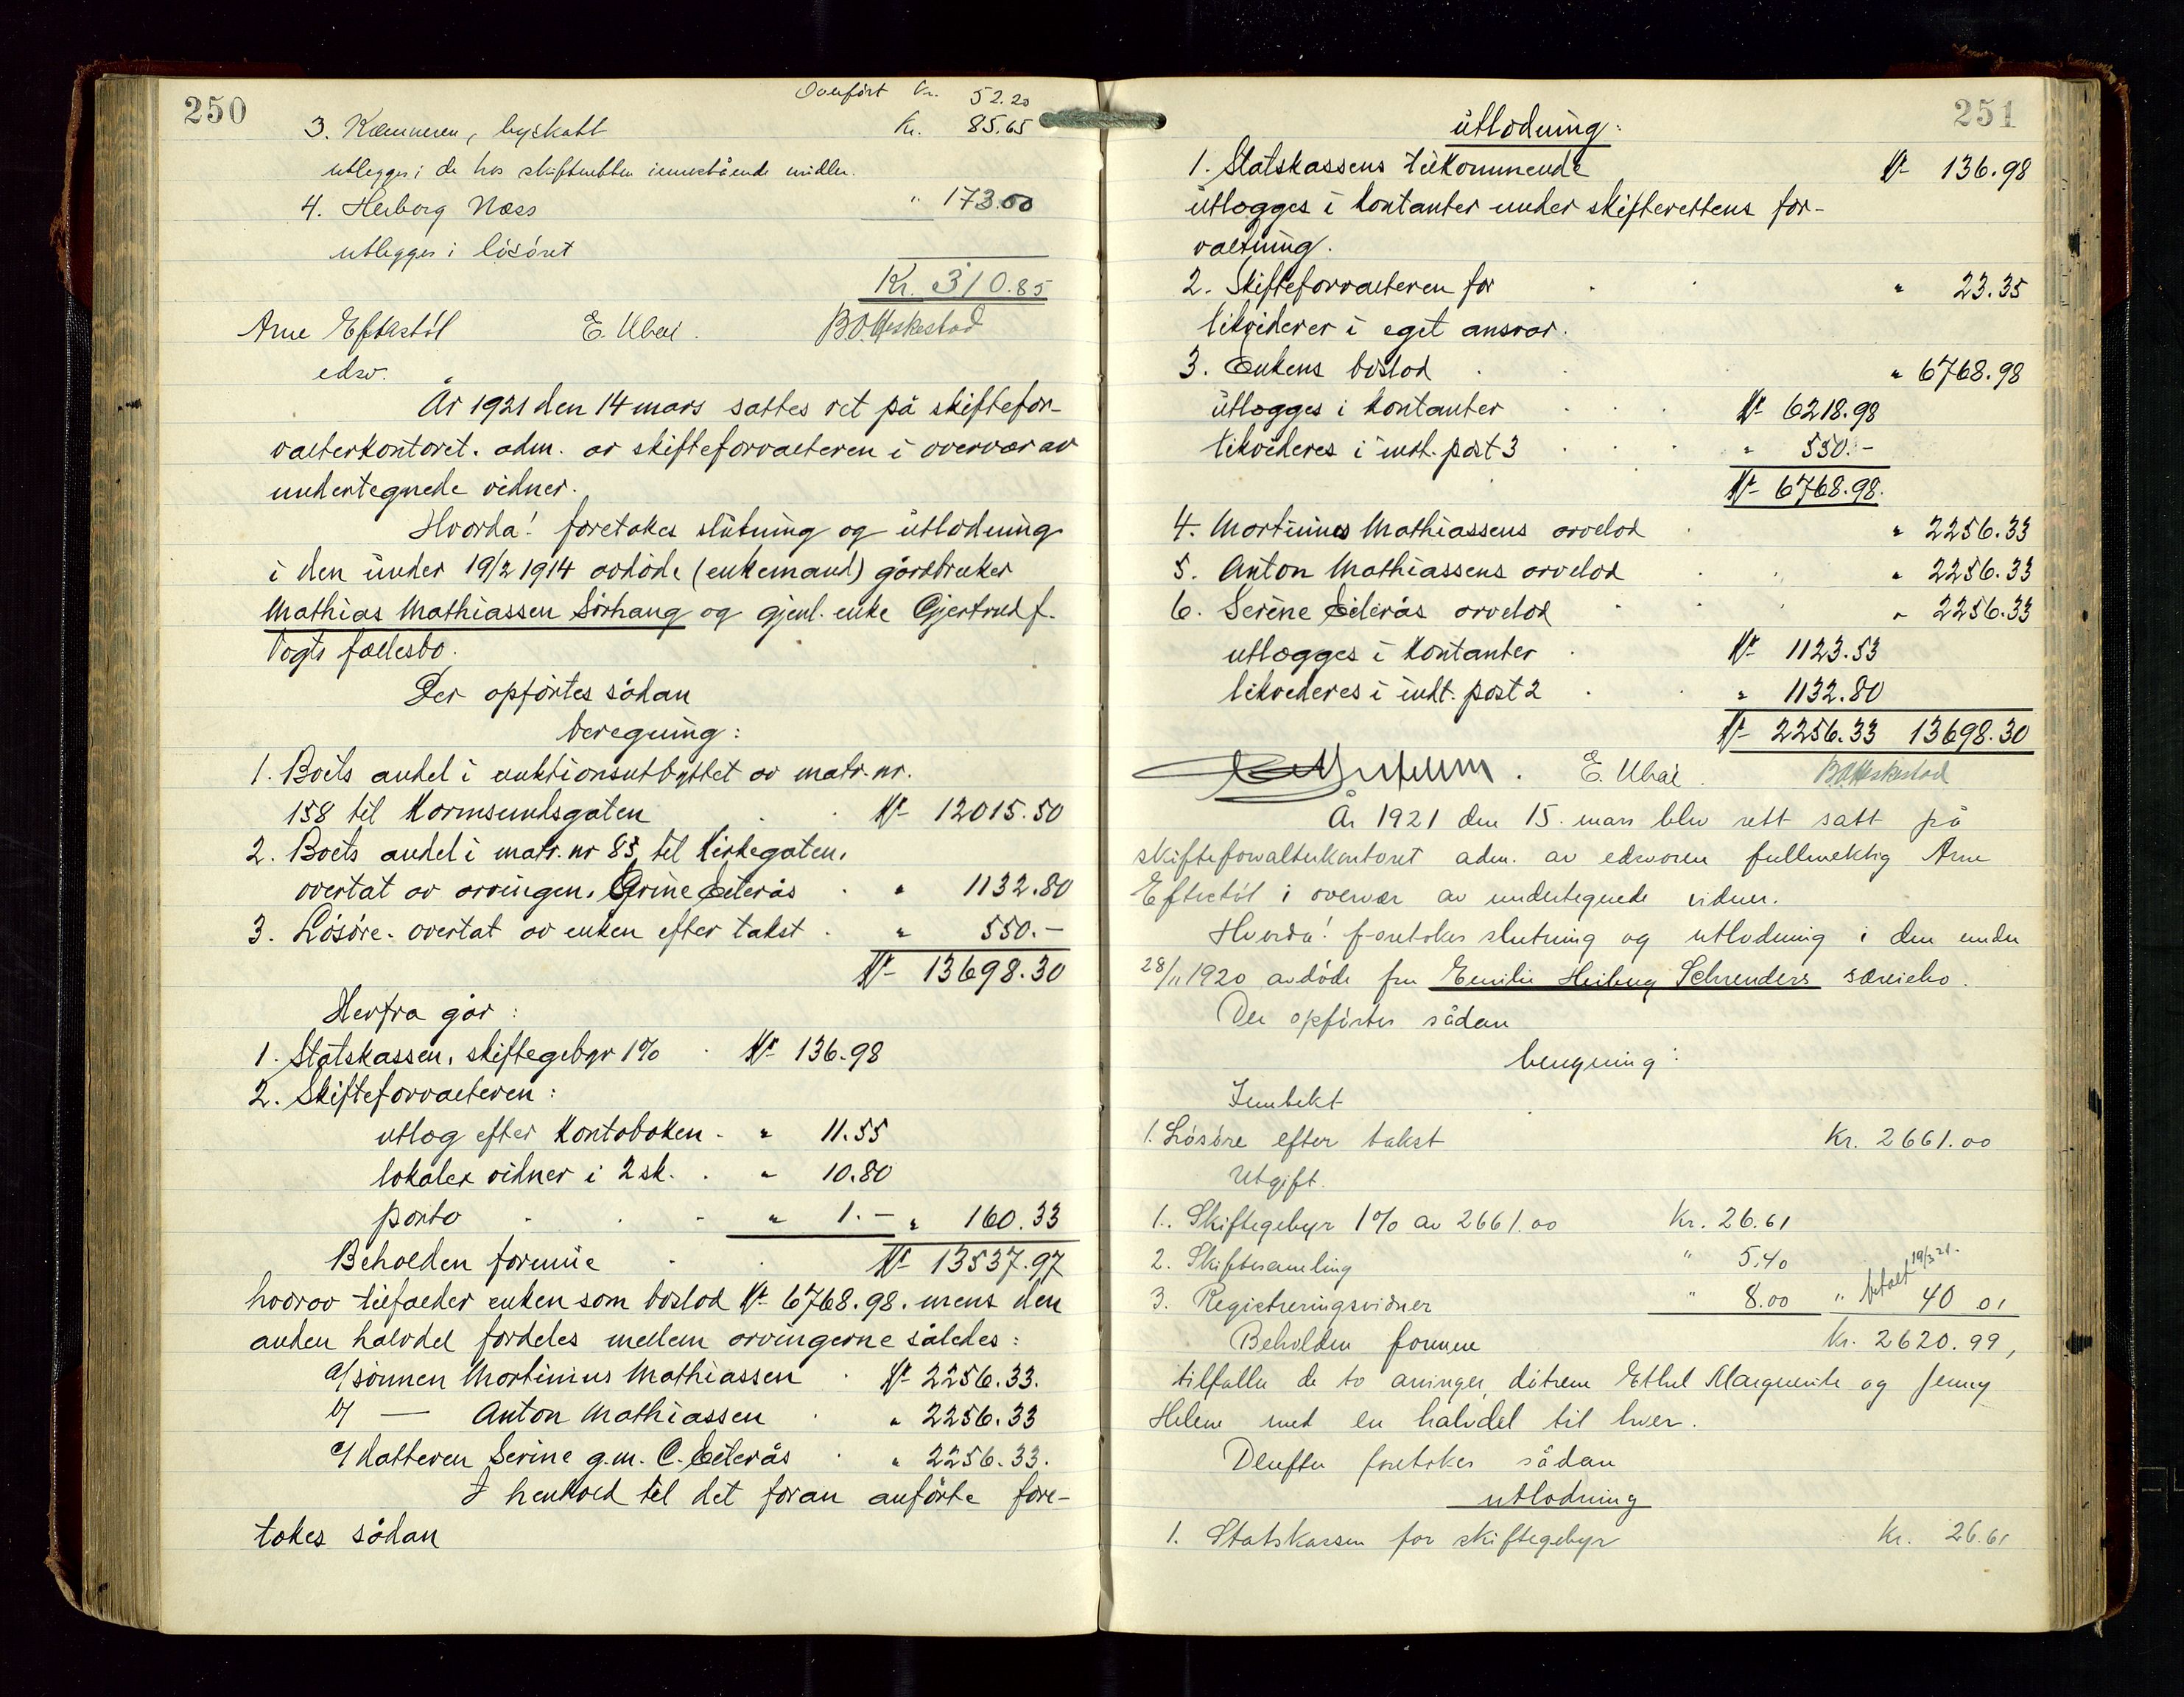 250
Overført Kr. 52.20
3. Kæmneren, byskatt Kr. 85.65
utlegges i de hos skifteretten innestående midler.
4. Herborg Næss " 173.00
utlegges i løsøret
Kr. 310.85
Arne Eftestøl E. Ubai. B.O. Heskestad
edsv.
År 1921 den 14 mars sattes ret på skiftefor-
valterkontoret. adm. av skifteforvalteren i overvær av
undertegnede vidner.
Hvorda! foretokes slutning og utlodning
i den under 19/2 1914 avdøde (enkemand) gårdbruker
Mathias Mathiassen Sørhaug og gjenl. enke Gjertrud f.
Vogts fællesbo.
Der opførtes sådan
beregning:
1. Boets andel i auktionsutbyttet av matr. nr.
158 til Karmsundsgaten Kr 12015.50
2. Boets andel i matr. nr 85 til Kirkegaten,
overtat av arvingen, Serine Eilerås " 1132.80
3. Løsøre. overtat av enken efter takst " 550.-
Kr 13698.30
Herfra går:
1. Statskassen, skiftegebyr 1% Kr 136.98
2. Skifteforvalteren:
utlæg efter kontoboken " 11.55
lokaler vidner i 2 sk. " 10.80
porto " 1.- " 160.33
Beholden formue Kr 13537.97
hvorav tilfalder enken som boslod Kr 6768.98. mens den
anden halvdel fordeles mellem arvingerne således:
a/ sønnen Martinius Mathiassen Kr 2256.33.
b/ — Anton Mathiassen " 2256.33
c/ datteren Serine g.m. C. Eilerås " 2256.33.
I henhold til det foran anførte fore-
tokes sådan
251
utlodning:
1. Statskassens tilkommende Kr 136.98
utlægges i kontanter under skifterettens for-
valtning.
2. Skifteforvalteren for " 23.35
likviderer i eget ansvar.
3. Enkens boslod " 6768.98
utlægges i kontanter Kr 6218.98
likvideres i indt. post 3 " 550.-
Kr 6768.98.
4. Martinius Mathiassens arvelod " 2256.33
5. Anton Mathiassens arvelod " 2256.33
6. Serine Eilerås arvelod " 2256.33
utlægges i kontanter Kr 1123.53
likvideres i indt. post 2 " 1132.80
Kr 2256.33 13698.30
E. Ubai. B.O. Heskestad
År 1921 den 15. mars blev rett satt på
skifteforvalterkontoret adm. av edsvoren fullmektig Arne
Eftestøl i overvær av undertegnede vidner.
Hvorda! foretokes slutning og utlodning i den under
28/11 1920 avdøde fru Emilie Heiberg Schrøders særeiebo.
Der opførtes sådan
beregning:
Inntekt
1. Løsøre efter takst Kr. 2661.00
Utgift.
1. Skiftegebyr 1% av 2661.00 Kr. 26.61
2. Skiftesamling " 5.40
3. Registreringsvidner " 8.00 " betalt 19/3 21. 40 01
Beholden formue Kr. 2620.99,
tilfaller de to arvinger, døtrene Ethel Marguerite og Jenny
Helene med en halvdel til hver.
Derefter foretokes sådan
utlodning
1. Statskassen for skiftegebyr Kr. 26.61